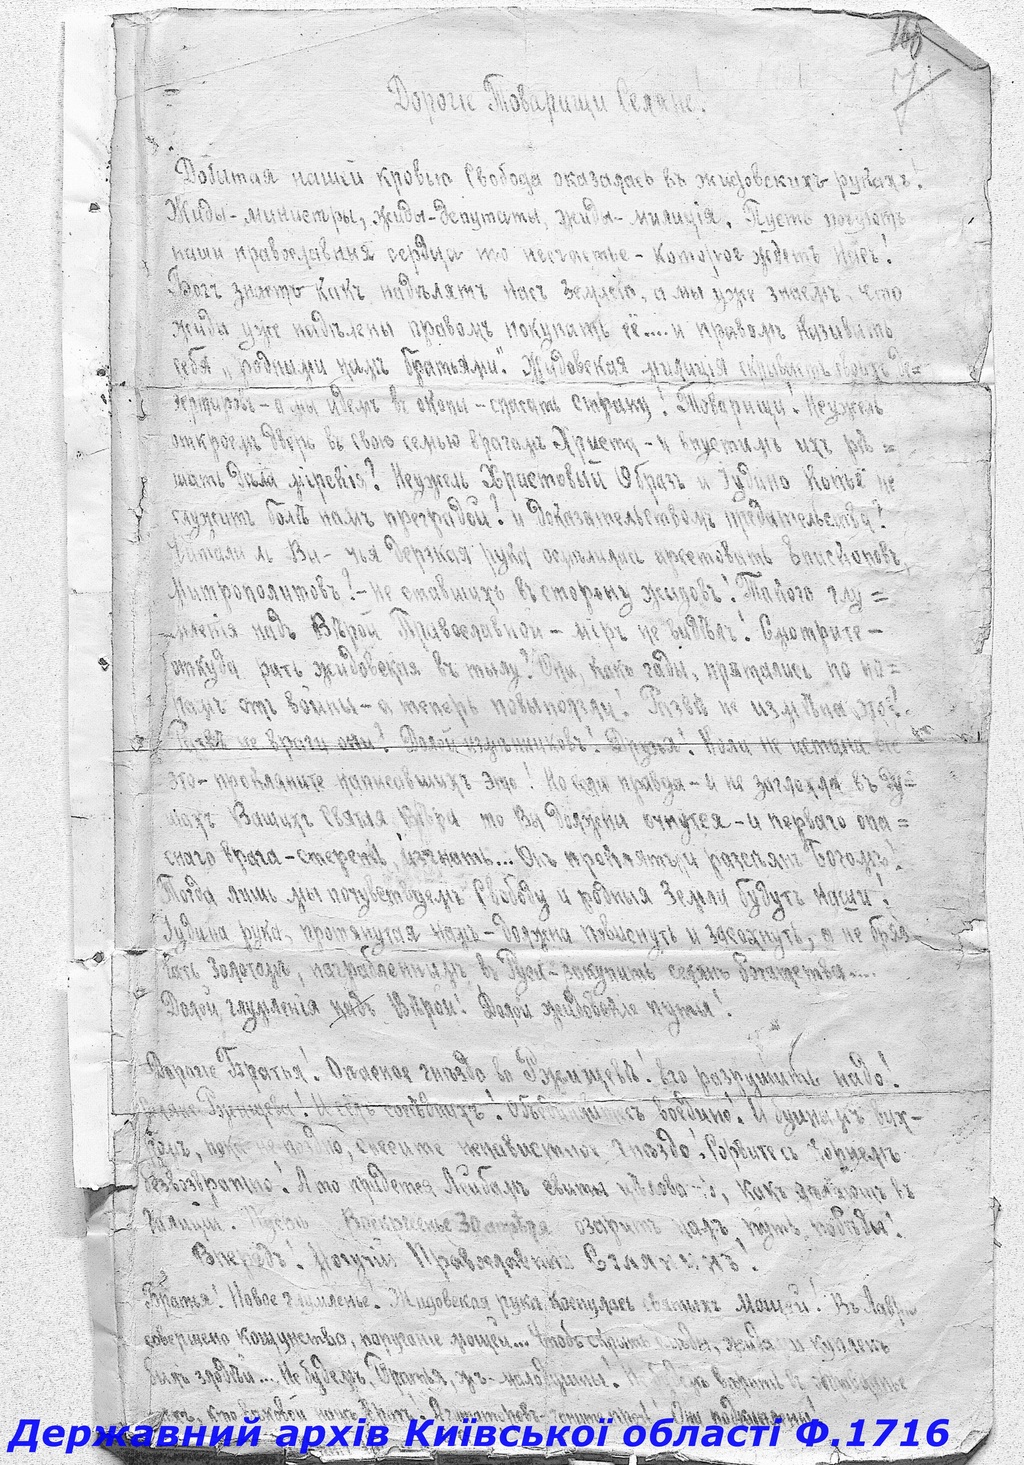 160
7
Дорогіе Товарищи Селяне!
Добытая нашей кровью Свобода оказалась въ жидовскихъ рукахъ!
Жиды-министры, жиды-депутаты, жиды-милиція. Пусть почуютъ
наши православныя сердца то несчастье - которое ждетъ насъ!
Богъ знаетъ какъ надѣлятъ насъ Землею, а мы уже знаемъ, что
жиды уже надѣлены правомъ покупать её.... и правомъ называть
себя „родными намъ братьями". Жидовская милиція скрываетъ своихъ де=
зертировъ - а мы идемъ въ окопы - спасать страну! Товарищи! Неужель
откроемъ дверь въ свою семью врагамъ Христа - и впустимъ ихъ рѣ=
шать Дѣла мірскія? Неужель Христовый Образъ и Іудино Копье не
служитъ болѣ намъ преградой? и Доказательствомъ предательства?
Читали ль Вы - чья Дерзкая рука осмѣлилась арестовать Епископовъ
Митрополитовъ? - не ставшихъ въ сторону жыдовъ! Такого глу=
мленія надъ Вѣрой Православной - міръ не видѣлъ! Смотрите -
откуда рать жидовская въ тылу? Они, какъ гады, прятались по но=
рамъ отъ войны - а теперь повыползли! Развѣ не измѣна это?
Развѣ не враги они? Долой измѣнниковъ! Друзья! Коли не истина все
это - прокляните написавшихъ это! Но если правда - и не заглохла въ Ду=
шахъ Вашихъ Святая Вѣра то Вы Должны очнутся - и перваго опа=
снаго врага - стереть, изгнать... Онъ проклятъ и разсѣянъ Богомъ!
Тогда лишь мы почувствуемъ Свободу и родныя Земли будутъ наши!
Іудина рука, протянутая намъ - должна повиснуть и засохнуть, а не бряз
чать Золотомъ, награбленнымъ въ Руси - закупить селянъ богатства....
Долой глумленія надъ Вѣрой! Долой жидовскіе путы!
Дорогіе Братья! Опасное гнѣздо во Ржищевѣ! Его разрушить надо!
Селяне Ржищева! И сёлъ сосѣднихъ! Объединившись воедино! И буйнымъ вих-
ромъ, пока не поздно, снесите ненавистное Гнѣздо! Сорвите съ Корнемъ
безвозвратно! А то придется Лейбамъ свиты цѣловать, какъ дѣлаютъ въ
Галиціи. Пусть Воскресенье 30 апрѣля озаритъ намъ путь побѣды!
Впередъ! Могучій Православный Селянинъ!
Братья! Новое глумленье. Жидовская рука коснулась святыхъ Мощей! Въ Лаврѣ
совершено Кощунство, поруганіе мощей... Чтобъ скрыть слѣды,
были злодѣи... Не будемъ, Братья, малодушны!
Они подкуплены!
Державний архів Київської області Ф.1716